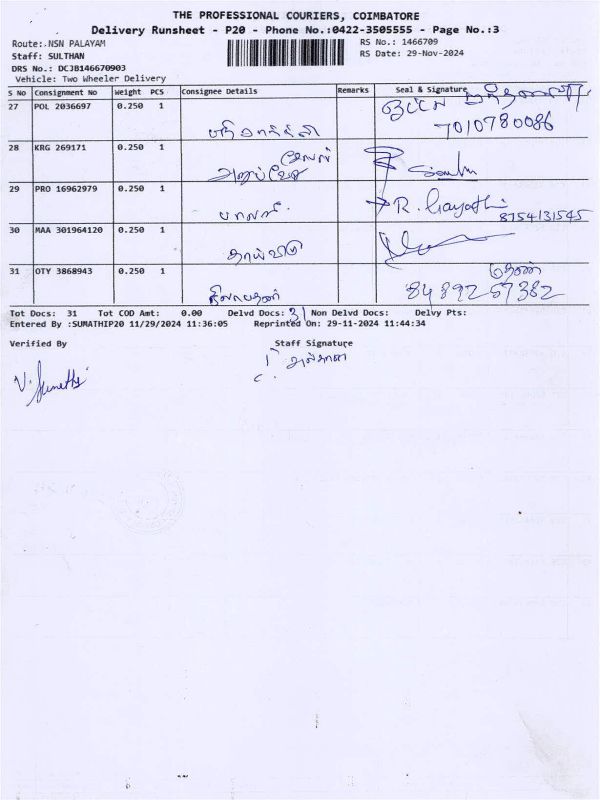 THE PROFESSIONAL COURIERS, COIMBATORE
Delivery Runsheet - P20 - Phone No.:0422-3505555 - Page No.:3
Route: NSN PALAYAM RS No.: 1466709
Staff: SULTHAN RS Date: 29-Nov-2024
DRS No.: DCJB146670903
Vehicle: Two Wheeler Delivery
S No Consignment No Weight PCS Consignee Details Remarks Seal & Signature
27 POL 2036697 0.250 1
7010780086
28 KRG 269171 0.250 1
29 PRO 16962979 0.250 1 பாலாஜி R. Gayathri
8754131545
30 MAA 301964120 0.250 1 தாய்வீடு
31 OTY 3868943 0.250 1
84892 57382
Tot Docs: 31 Tot COD Amt: 0.00 Delvd Docs: 31 Non Delvd Docs: Delvy Pts:
Entered By :SUMATHIP20 11/29/2024 11:36:05 Reprinted On: 29-11-2024 11:44:34
Verified By Staff Signature
V. Sumathi